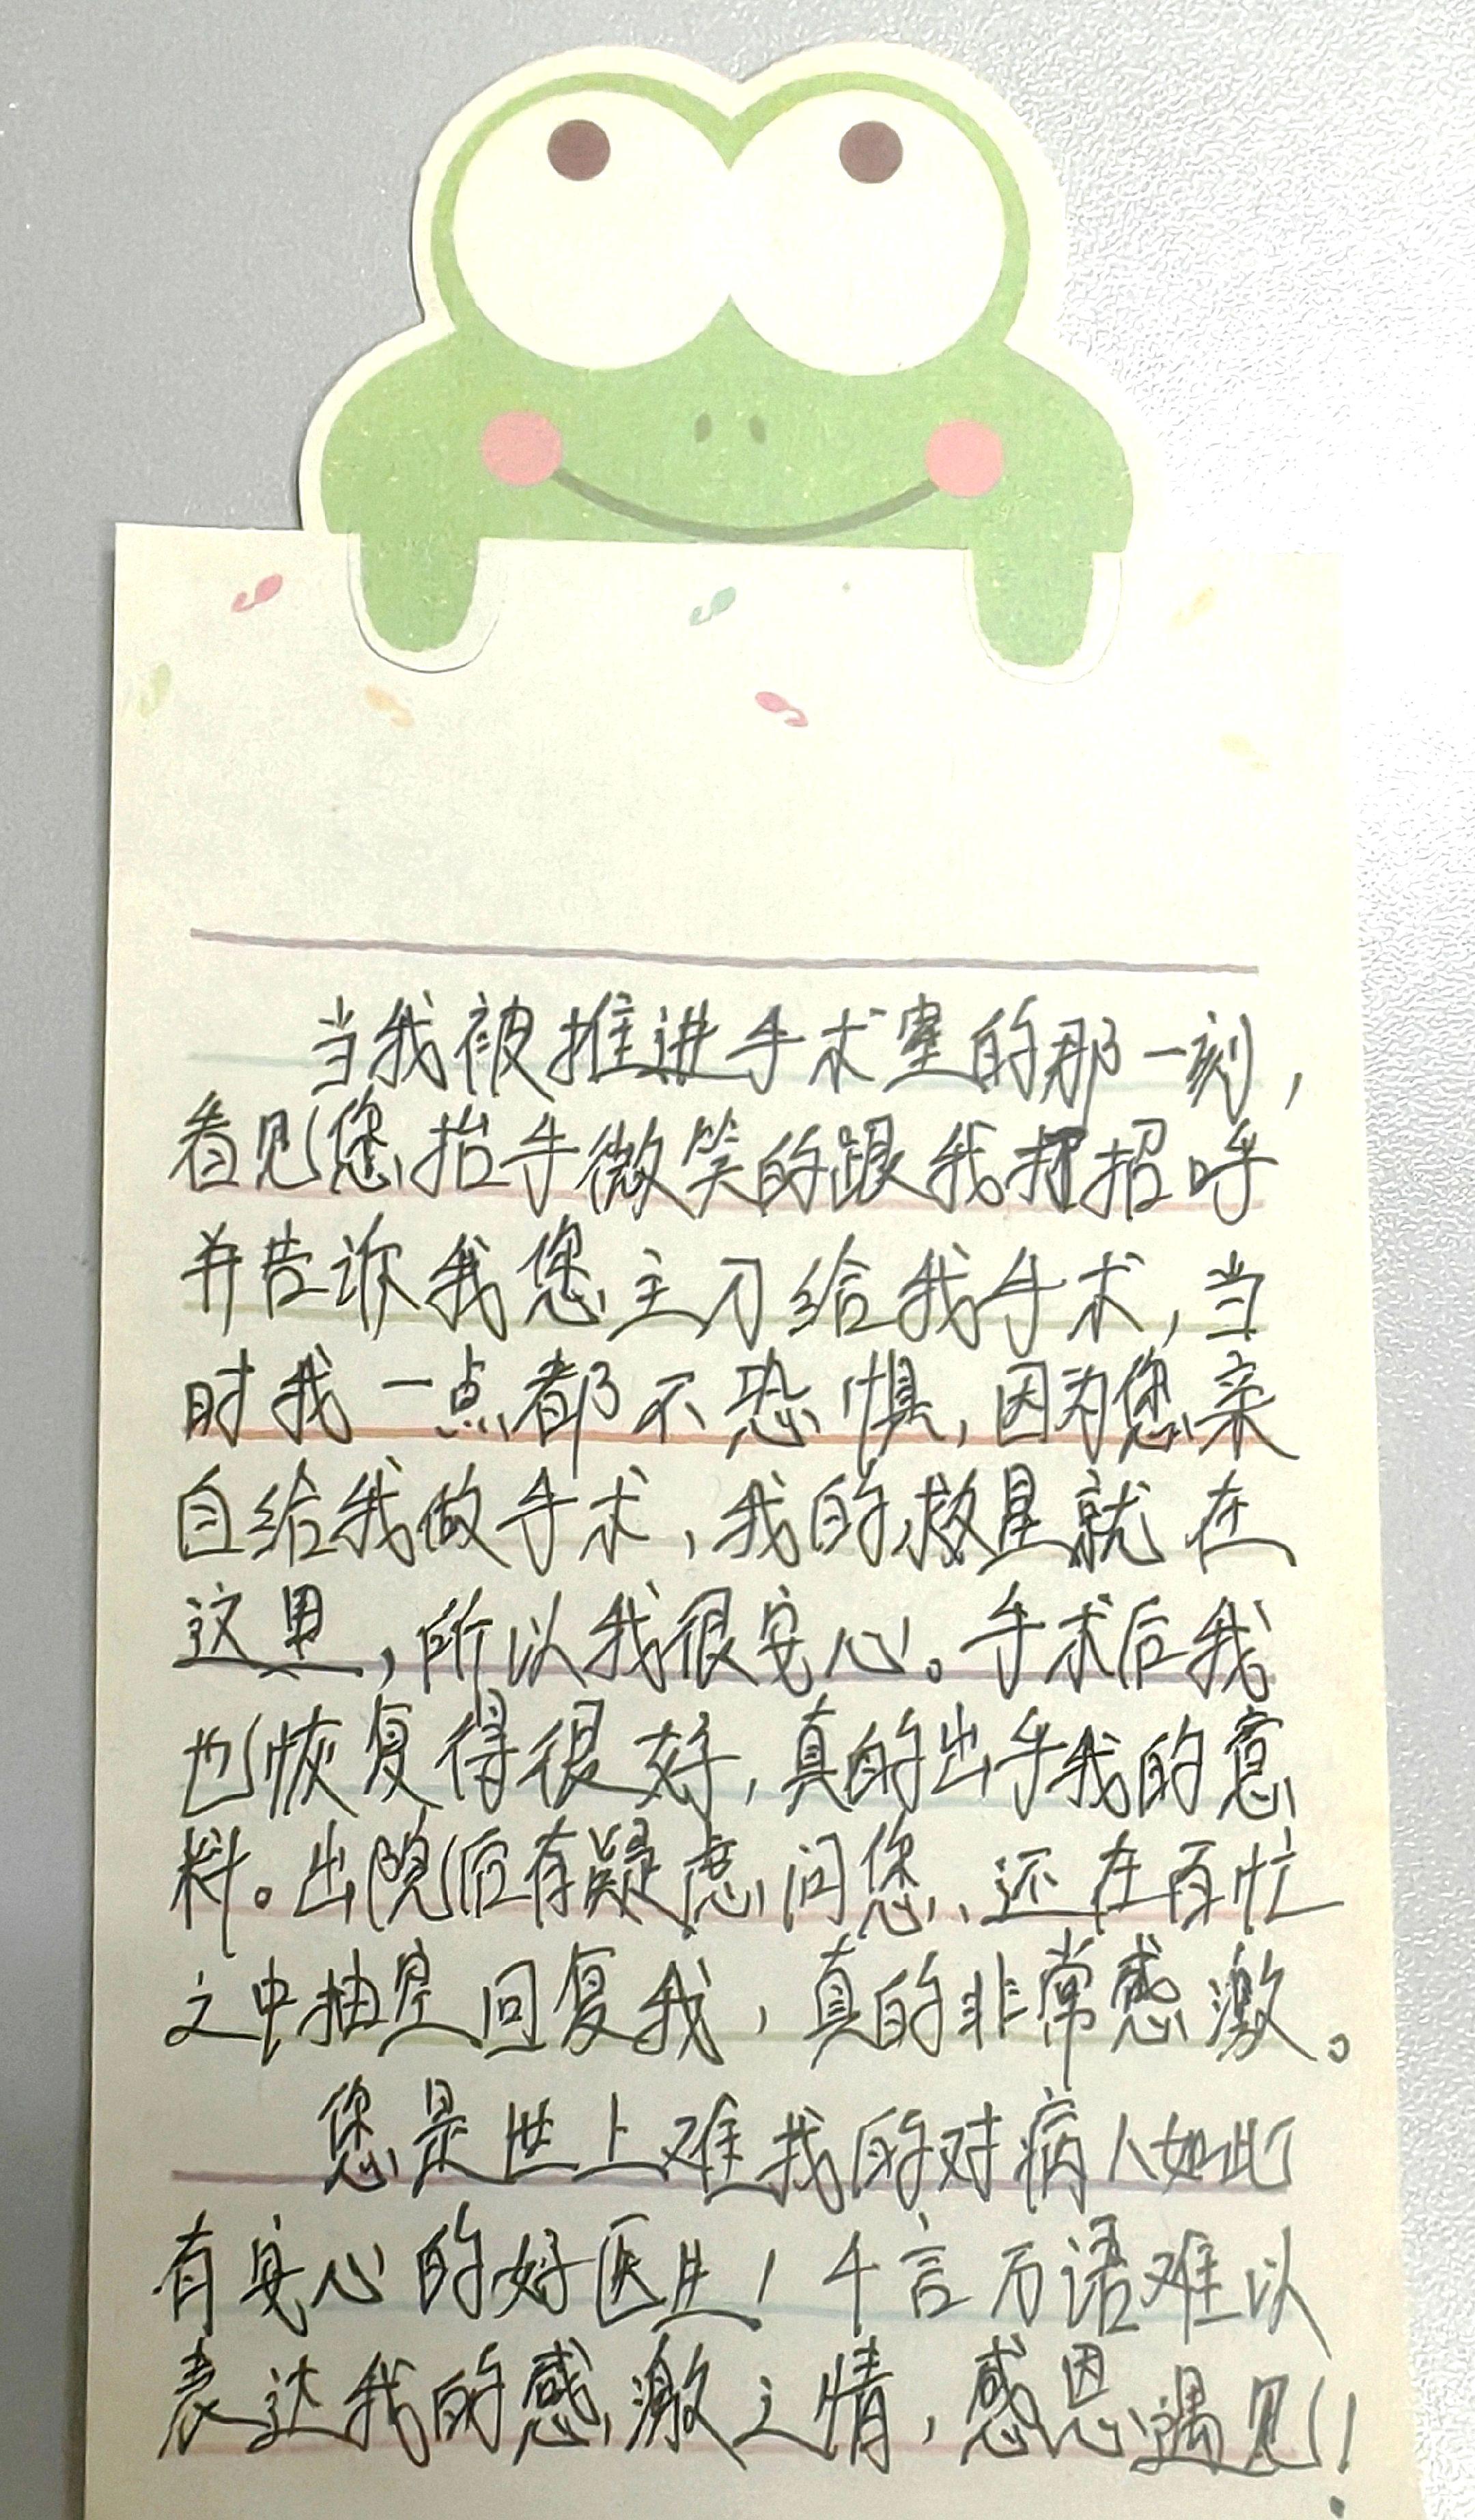 当我被推进手术室的那一刻，
看见您抬手微笑的跟我打招呼
并告诉我您主刀给我手术，当
时我一点都不恐惧，因为您亲
自给我做手术，我的救星就在
这里，所以我很安心。手术后我
也恢复得很好，真的出乎我的意
料。出院后有疑虑问您、还在百忙
之中抽空回复我，真的非常感激。
您是世上难找的对病人如此
有安心的好医生！千言万语难以
表达我的感激之情，感恩遇见！